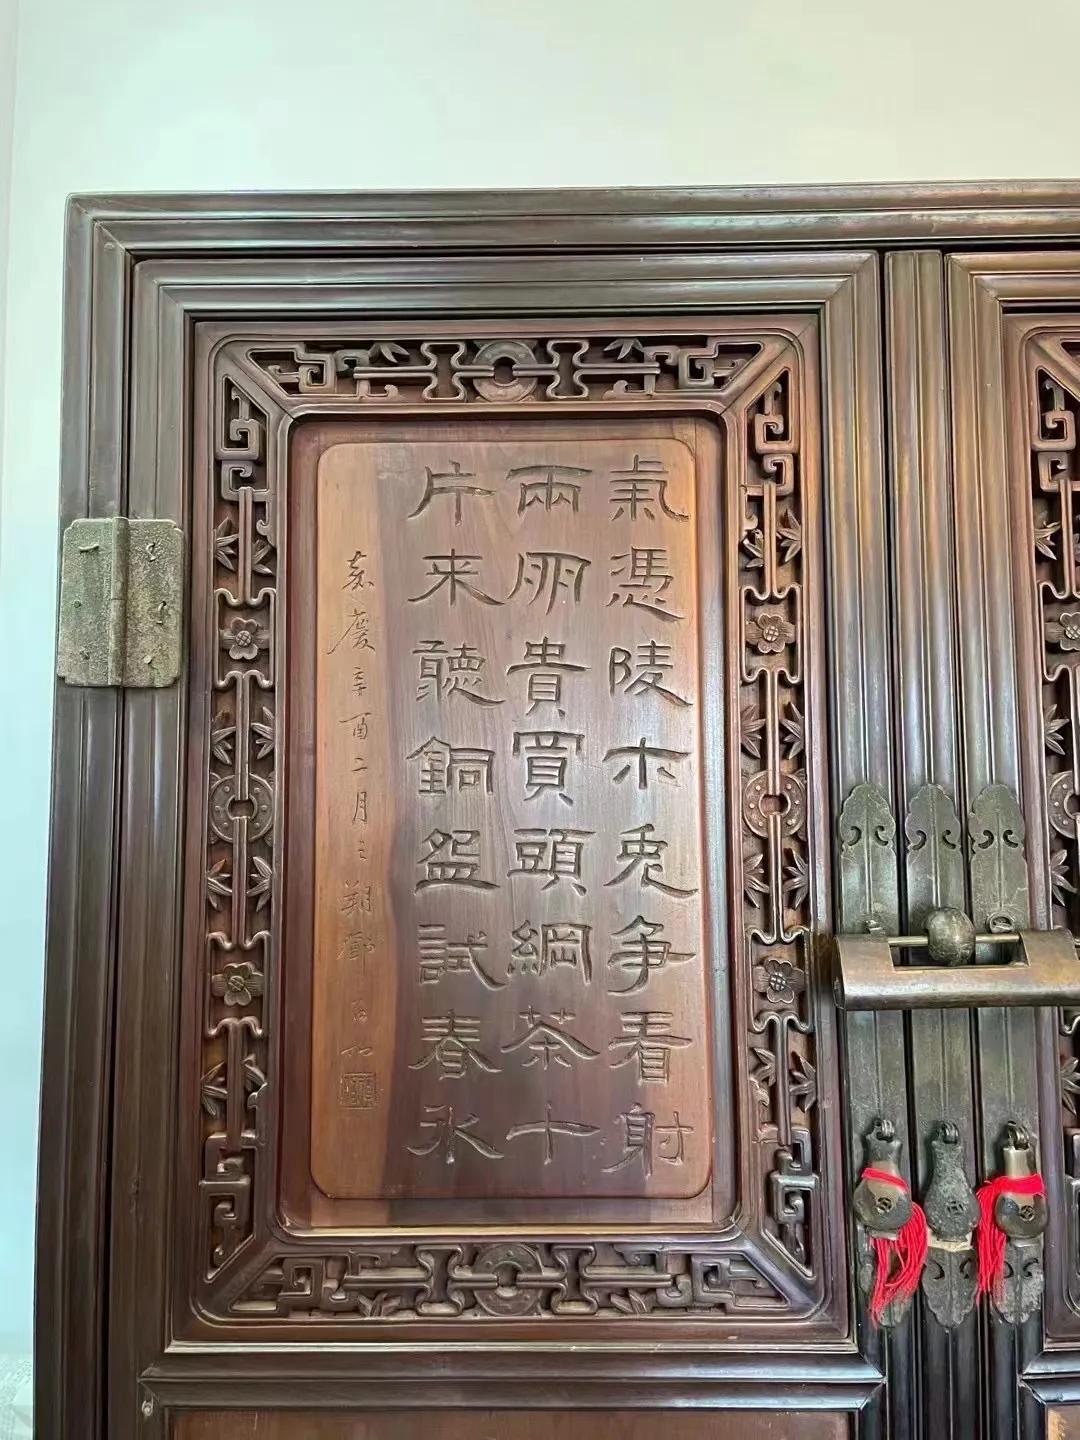 氣憑陵木兔争看射
兩朋貴買頭綱茶十
片来聽銅盌試春氷
嘉慶辛酉二月之朔